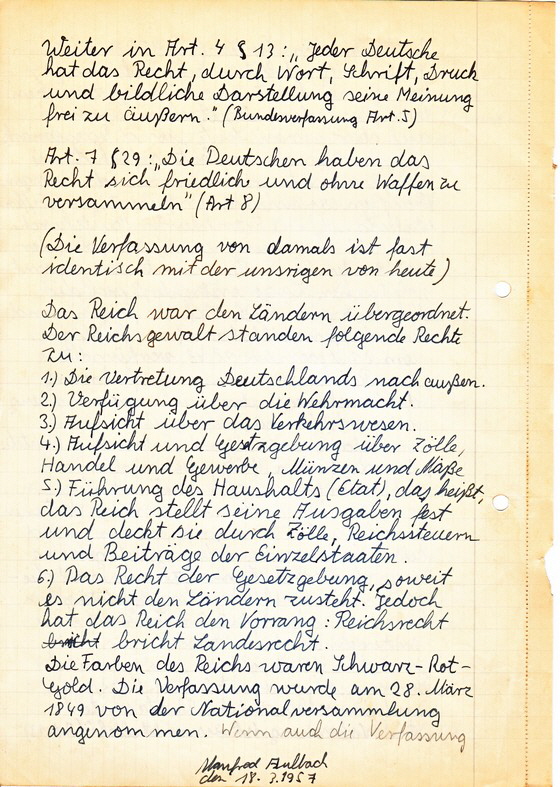 Weiter in Art. 4 § 13: „Jeder Deutsche
hat das Recht, durch Wort, Schrift, Druck
und bildliche Darstellung seine Meinung
frei zu äußern." (Bundesverfassung Art. 5)
Art. 7 § 29: „Die Deutschen haben das
Recht sich friedlich und ohne Waffen zu
versammeln" (Art 8)
(Die Verfassung von damals ist fast
identisch mit der unsrigen von heute)
Das Reich war den Ländern übergeordnet.
Der Reichsgewalt standen folgende Rechte
zu:
1.) Die Vertretung Deutschlands nach außen.
2.) Verfügung über die Wehrmacht.
3.) Aufsicht über das Verkehrswesen.
4.) Aufsicht und Gesetzgebung über Zölle,
Handel und Gewerbe, Münzen und Maße
5.) Führung des Haushalts (Etat), das heißt,
das Reich stellt seine Ausgaben fest
und deckt sie durch Zölle, Reichssteuern
und Beiträge der Einzelstaaten.
6.) Das Recht der Gesetzgebung, soweit
es nicht den Ländern zusteht. Jedoch
hat das Reich den Vorrang: Reichsrecht
bricht Landesrecht.
Die Farben des Reichs waren Schwarz-Rot-
Gold. Die Verfassung wurde am 28. März
1849 von der Nationalversammlung
angenommen. Wenn auch die Verfassung
Manfred Aulbach
den 18. 3. 1957